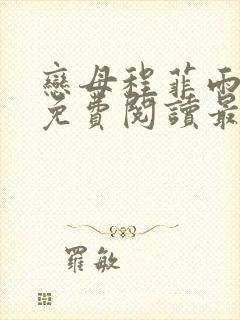 戀母程菲雨
免費閱讀最
羅敏